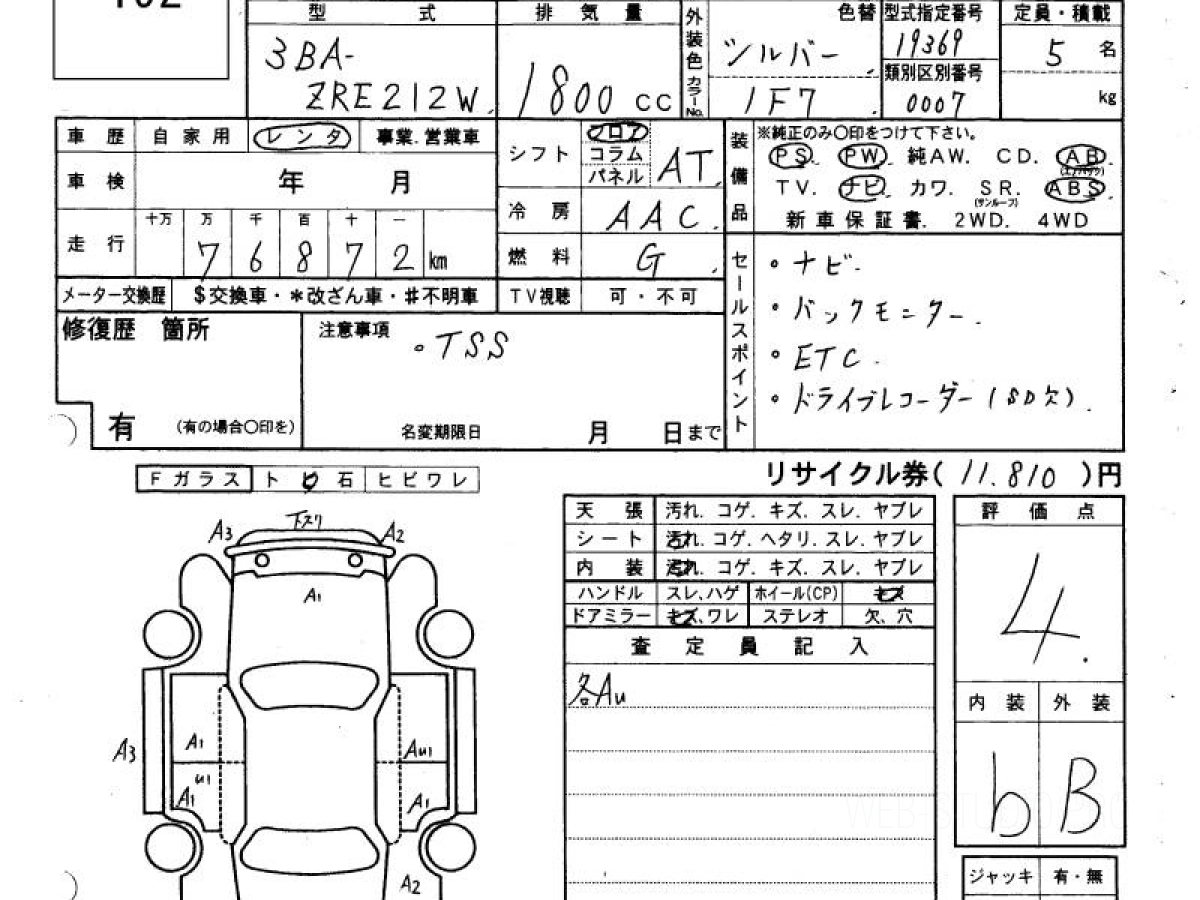 102
型 式
排 気 量
外装色
カラーNo.
色替
型式指定番号
定員・積載
3BA-
ZRE212W.
1800 CC
シルバー
1F7
19369
類別区別番号
0007
5 名
kg
車 歴 自 家 用 レ ン タ 事業.営業車
車 検 年 月
走 行 十万 万 千 百 十 一
7 6 8 7 2 km
メーター交換歴 $交換車・*改ざん車・#不明車
シフト フロア
コラム
パネル
AT.
冷 房 AAC.
燃 料 G.
TV視聴 可・不可
装備品
※純正のみ〇印をつけて下さい。
PS. PW. 純AW. CD. AB
(エアバック)
TV. ナビ. カワ. SR. ABS
(サンルーフ)
新車保証書. 2WD. 4WD
修復歴 箇所
有 (有の場合〇印を)
注意事項
・TSS
名変期限日 月 日まで
セールスポイント
・ナビ.
・バックモニター.
・ETC.
・ドライブレコーダー(SD欠).
リサイクル券( 11.810 )円
Fガラス ト ビ 石 ヒビワレ
A3 下スリ A2
A1
A3
A1
U1
A1
AU1
A1
A2
天 張 汚れ. コゲ. キズ. スレ. ヤブレ
シート 汚れ. コゲ. ヘタリ. スレ. ヤブレ
内 装 汚れ. コゲ. キズ. スレ. ヤブレ
ハンドル スレ、ハゲ ホイール(CP) キズ
ドアミラー キズ、ワレ ステレオ 欠、穴
査 定 員 記 入
各AU
評 価 点
4.
内 装 外 装
b B
ジャッキ 有・無